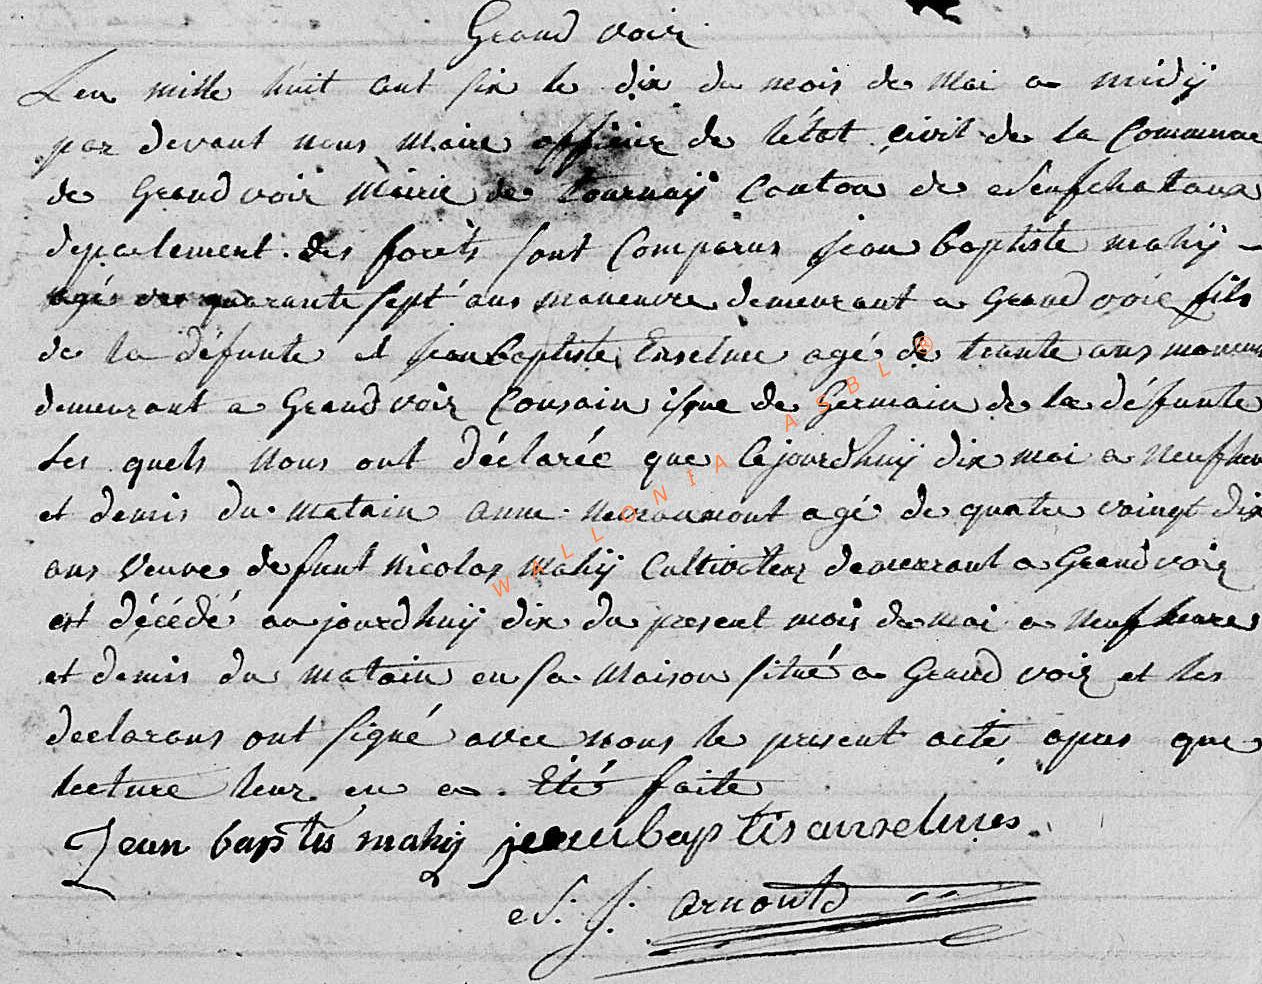 Grand voir
L'en mille huit cent six le dix du mois de Mai a midÿ
par devant nous Maire officier de l'état civil de la Commune
de Grandvoir Mairie de tournaÿ Conton de Neufchataux
departement des forêts sont Comparus jean baptiste mahÿ -
agés de quarante sept ans maneuvre demeurant a Grand voir fils
de la défunte et jean baptiste Enselme agé de trente ans maneuv
demeurant a Grandvoir Cousain issue de Germain de la défunte
Les quels Nous ont déclarée que Cejourdhuÿ dix mai a Neufheu
et demis du matain anne Neuraumont agé de quatre vaingt dix
ans Veuve defunt Nicolas Mahÿ Cultivateur demeurant a Grandvoir
est décédé aujourdhuÿ dix du present mois de Mai a Neufheures
et demis du matain en sa Maison situé a Grand voir et les
declarans ont signé avec nous le present acte apres que
lecture leur en a Eté faite
Jean baptis mahij jean baptis anselmes
N: J: arnould
WALLONIA ASBL ®